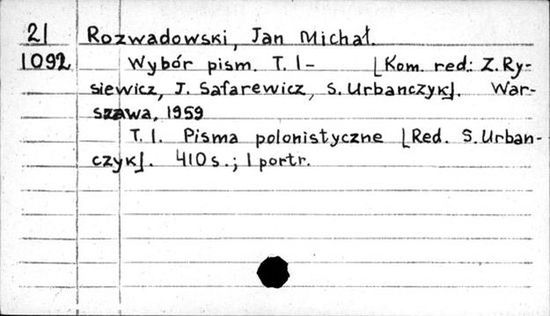 21 Rozwadowski, Jan Michał.
1092 Wybór pism. T. I- [Kom. red.: Z. Ry-
siewicz, J. Safarewicz, S. Urbańczyk]. War-
szawa, 1959
T. I. Pisma polonistyczne [Red. S. Urban-
czyk]. 410 s.; 1 portr.